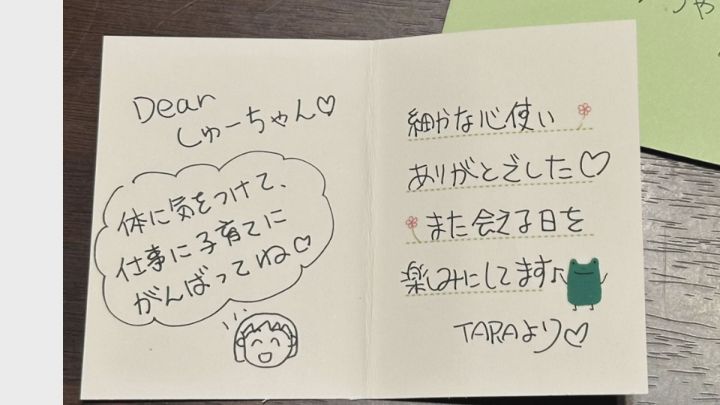 Dear
しゅーちゃん♡
体に気をつけて、
仕事に子育てに
がんばってね♡
細かな心使い
ありがとでした♡
また会える日を
楽しみにしてます♪
TARAより♡